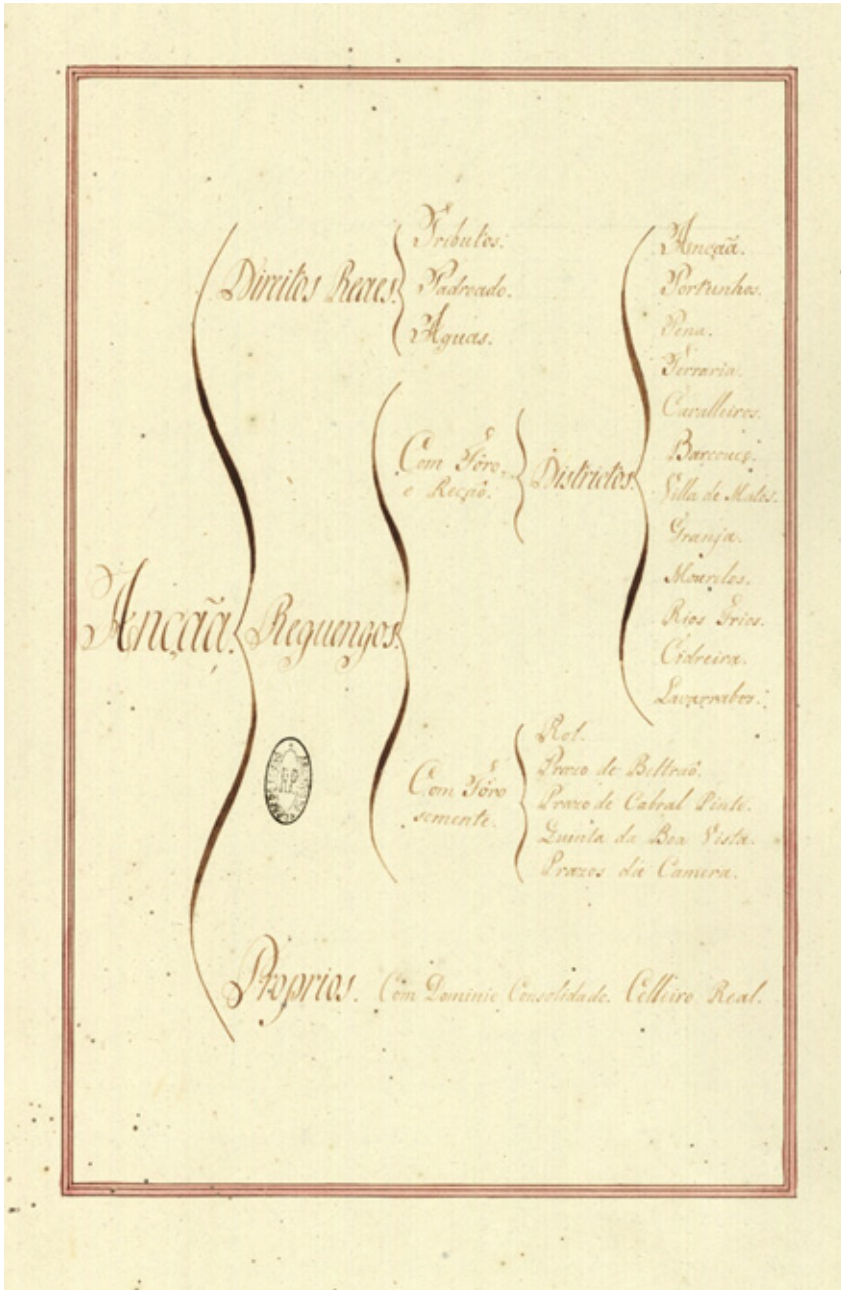 Ançãã.
Direitos Reaes.
Tributos.
Padroado.
Aguas.
Reguengos.
Com Fôro,
e Reção.
Districtos.
Ançãã.
Portunhos.
Pena.
Ferraria.
Cavalleiros.
Barcouço.
Villa de Matos.
Granja.
Mourelos.
Rios Frios.
Cidreira.
Lavarrabos.
Com Fôro
somente.
Rol.
Prazo de Beltraõ.
Prazo de Cabral Pinto.
Quinta da Boa Vista.
Prazos da Camera.
Proprios. Com Dominio Consolidado. Celleiro Real.